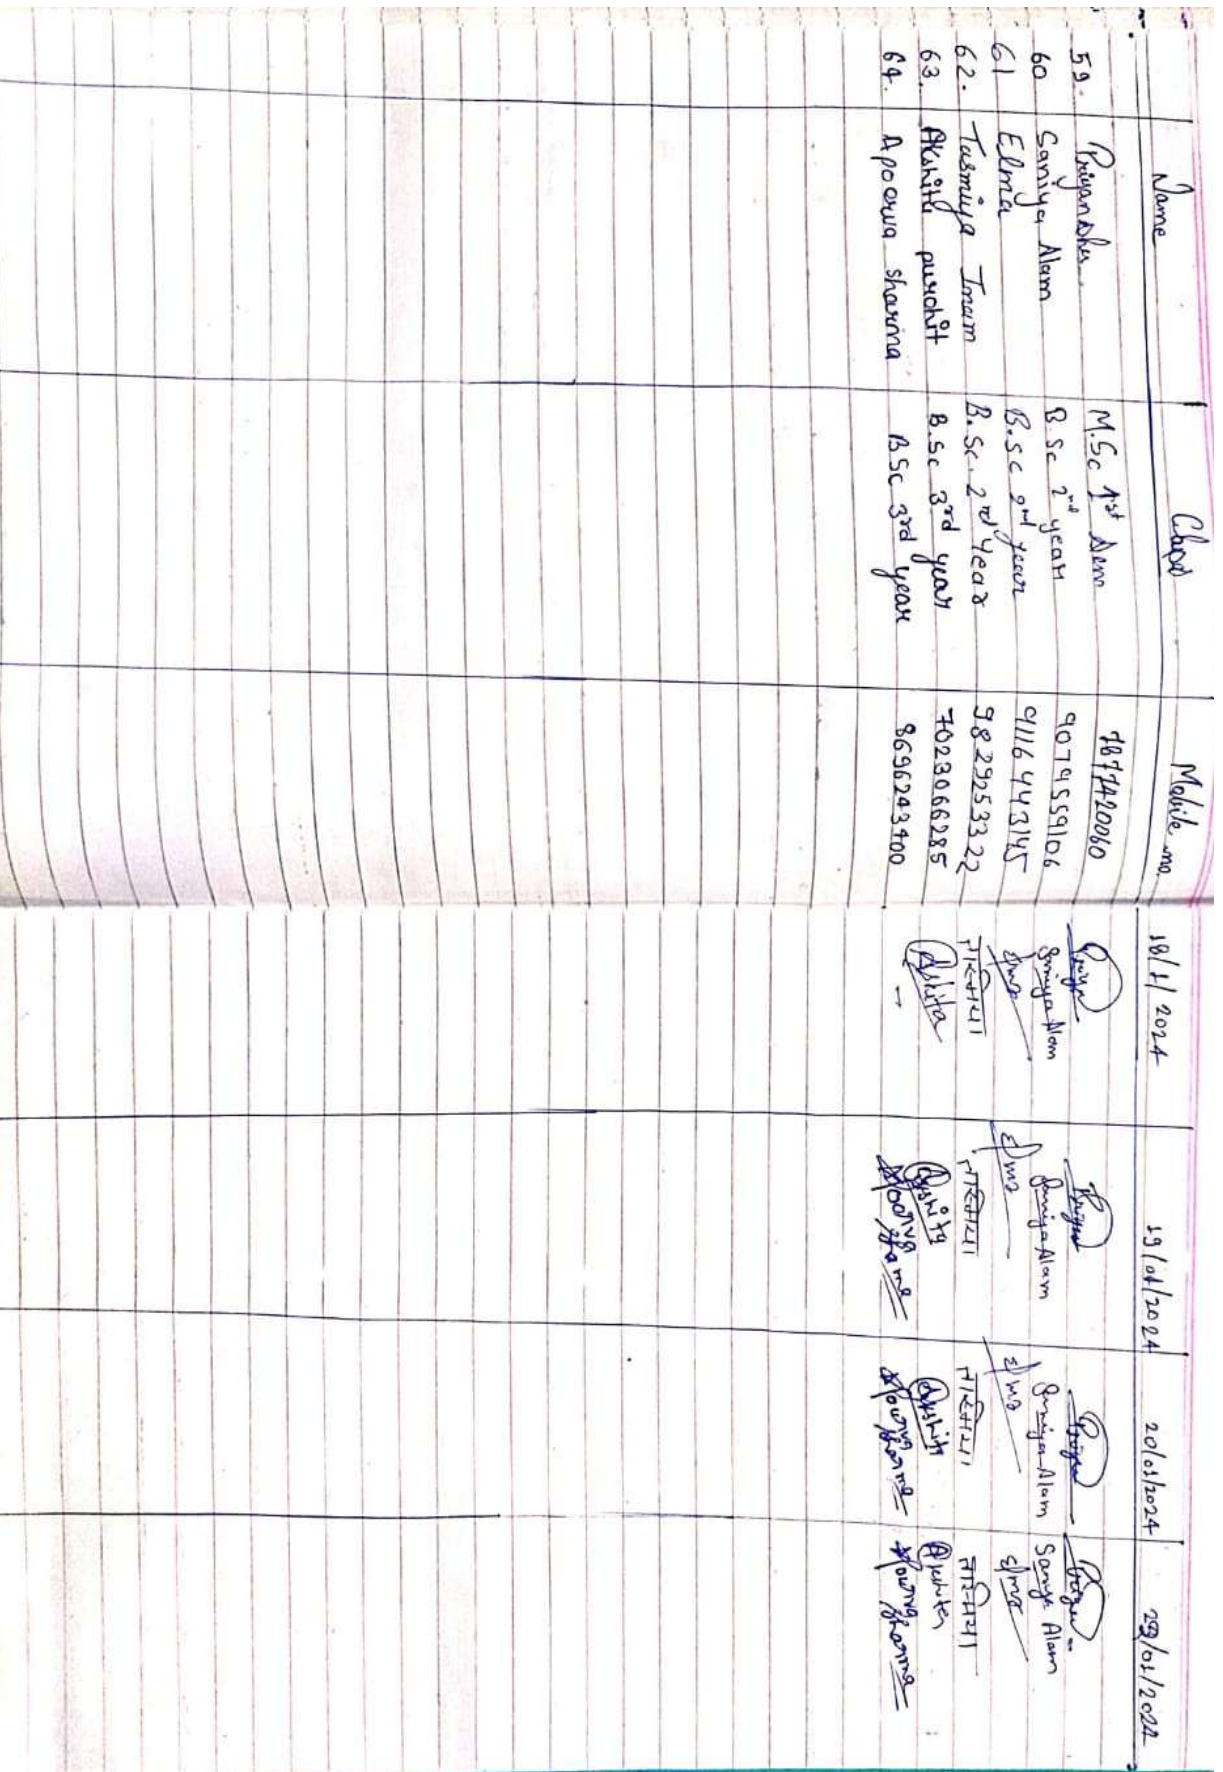 Name Class Mobile no. 18/1/2024 19/01/2024 20/01/2024 29/01/2024
59. Priyanshu M.Sc 1st Sem 7877420060 Priya Priya Priya Priya
60 Saniya Alam B.Sc 2nd year 9079559106 Saniya Alam Saniya Alam Saniya Alam Saniya Alam
61 Elma B.Sc 2nd year 9116443145
62. Tasmiya Imam B.Sc. 2nd Year 9829253322 तास्मिया तास्मिया तास्मिया तास्मिया
63. Akshita purohit B.Sc 3rd year 7023066285 Akshita Akshita Akshita Akshita
64. Apoorva sharma BSc 3rd year 8696243400 – Apoorva Sharma Apoorva Sharma Apoorva Sharma